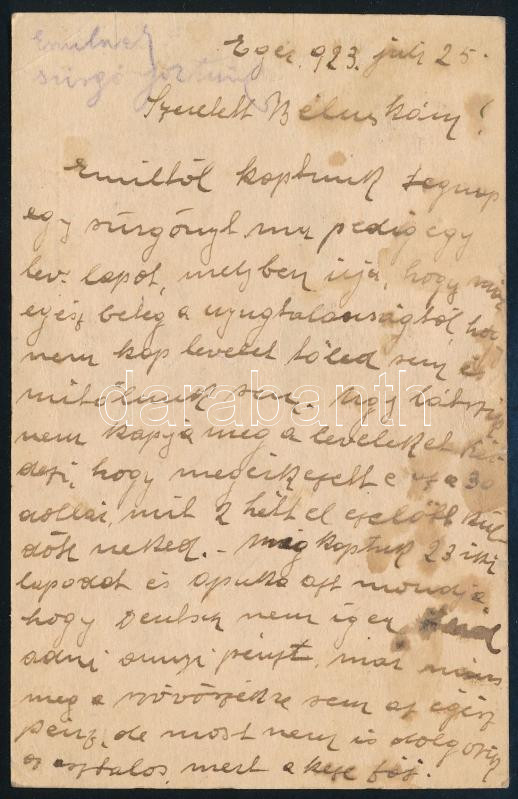 Emilnek
sürgő
Eger, 923. juli 25.
Szeretett Béluskám!
Emiltől kaptunk tegnap
egy sürgönyt, ma pedig egy
lev. lapot, melyben írja, hogy már
egész beteg a nyugtalanságtól, hogy
nem kap levelet tőled sem és
mitőlünk sem. Úgy látszik
nem kapja meg a leveleket. Kér
dezi, hogy megérkezett e az a 30
dollár, mit 2 héttel ezelőtt kül
dött neked. – Még kaptuk 23 iki
lapodat és apuka azt mondja
hogy Deutsch nem igen
adni annyi pénzt, mar nincs
meg a szövőszékre sem az egész
pénz, de most nem is dolgozik
az asztalos, mert a keze fáj.
darabanth